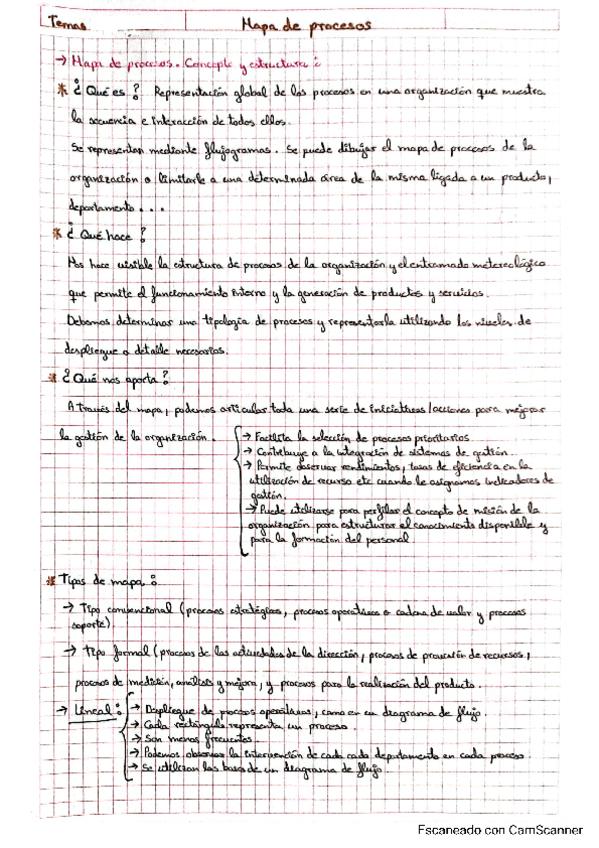 Temas
Mapa de procesos
→ Mapa de procesos. Concepto y estructura:
* ¿Qué es? Representación global de los procesos en una organización que muestra
la secuencia e interacción de todos ellos.
Se representan mediante flujogramas. Se puede dibujar el mapa de procesos de la
organización o limitarle a una determinada área de la misma ligada a un producto,
departamento...
* ¿Qué hace?
Nos hace visible la estructura de procesos de la organización y el entramado metereológico
que permite el funcionamiento interno y la generación de productos y servicios.
Debemos determinar una tipología de procesos y representarla utilizando los niveles de
despliegue o detalle necesarios.
* ¿Qué nos aporta?
A través del mapa, podemos articular toda una serie de iniciativas/acciones para mejorar
la gestión de la organización.
→ Facilita la selección de procesos prioritarios.
→ Contribuye a la integración de sistemas de gestión.
→ Permite observar rendimientos, tasas de eficiencia en la
utilización de recurso etc cuando le asignamos indicadores de
gestión.
→ Puede utilizarse para perfilar el concepto de misión de la
organización para estructurar el conocimiento disponible y
para la formación del personal
* Tipos de mapa:
→ Tipo convencional (procesos estratégicos, procesos operativos o cadena de valor y procesos
soporte).
→ Tipo formal (procesos de las actividades de la dirección, procesos de provisión de recursos,
procesos de medición, análisis y mejora, y procesos para la realización del producto.
→ Lineal:
→ Despliegue de procesos operativos, como en un diagrama de flujo.
→ Cada rectángulo representa un proceso.
→ Son menos frecuentes.
→ Podemos observar la intervención de cada cada departamento en cada proceso.
→ Se utilizan las bases de un diagrama de flujo.
Escaneado con CamScanner